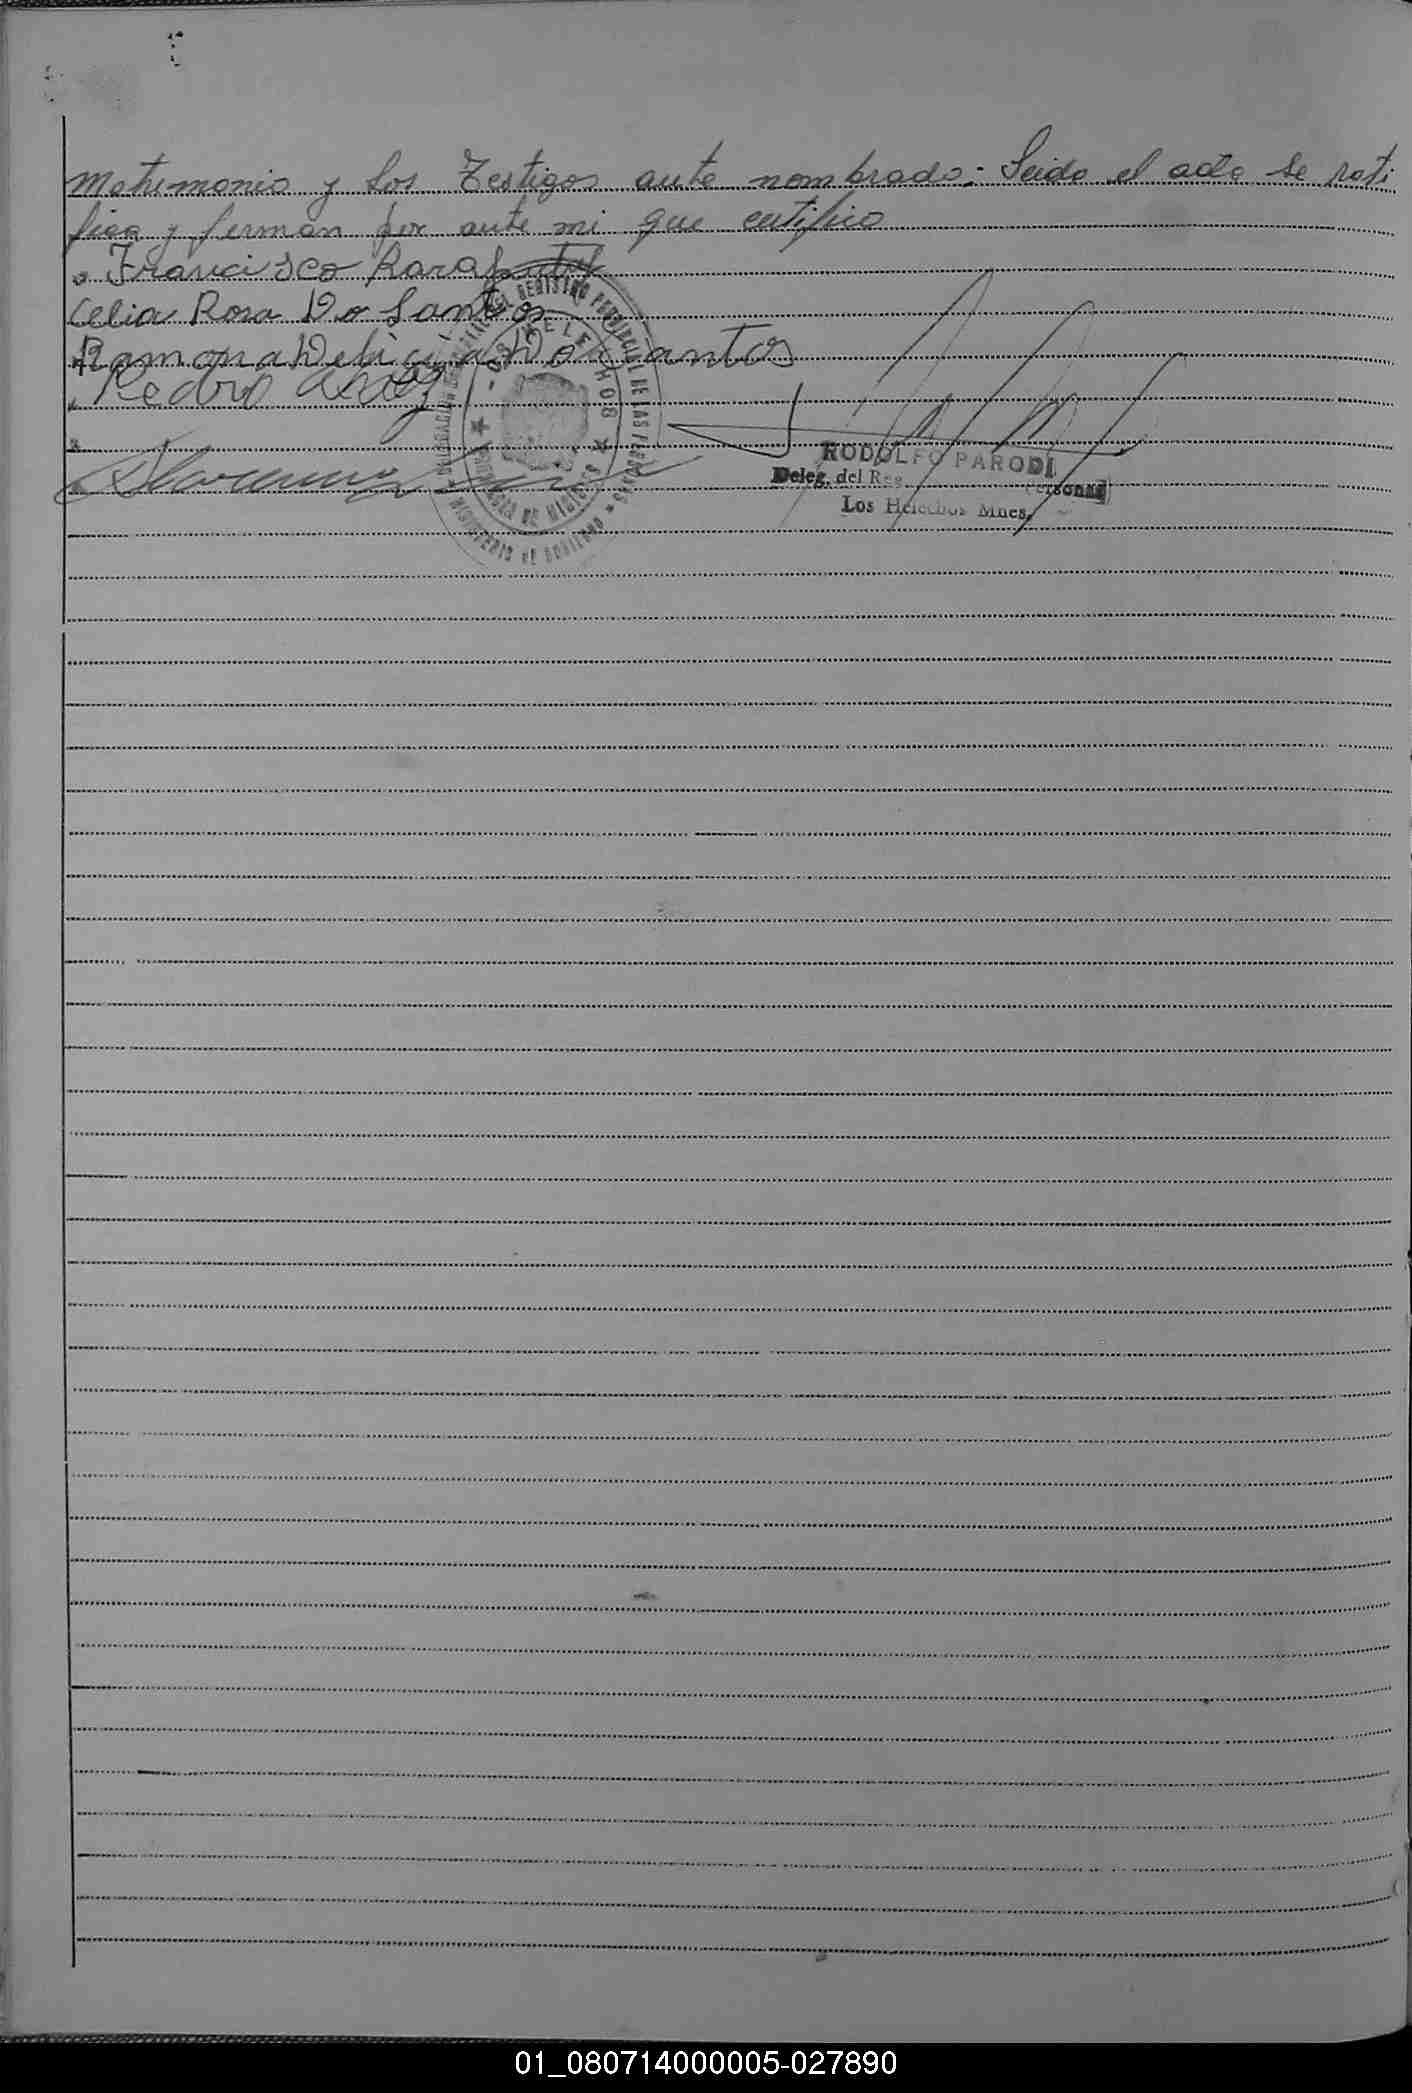 matrimonio y los Testigos ante nombrado: Leido el acta se rati
fica y ferman por ante mi que certifico
Francisco
Celia Rosa Do Santos
Ramona Do Santos
Pedro
RODOLFO PARODI
Deleg. del Reg. Personas
Los Helechos Mnes.
DEL REGISTRO PROVINCIAL DE LAS PERSONAS
MINISTERIO DE GOBIERNO
LOS HELECHOS
PROVINCIA DE MISIONES
01_080714000005-027890